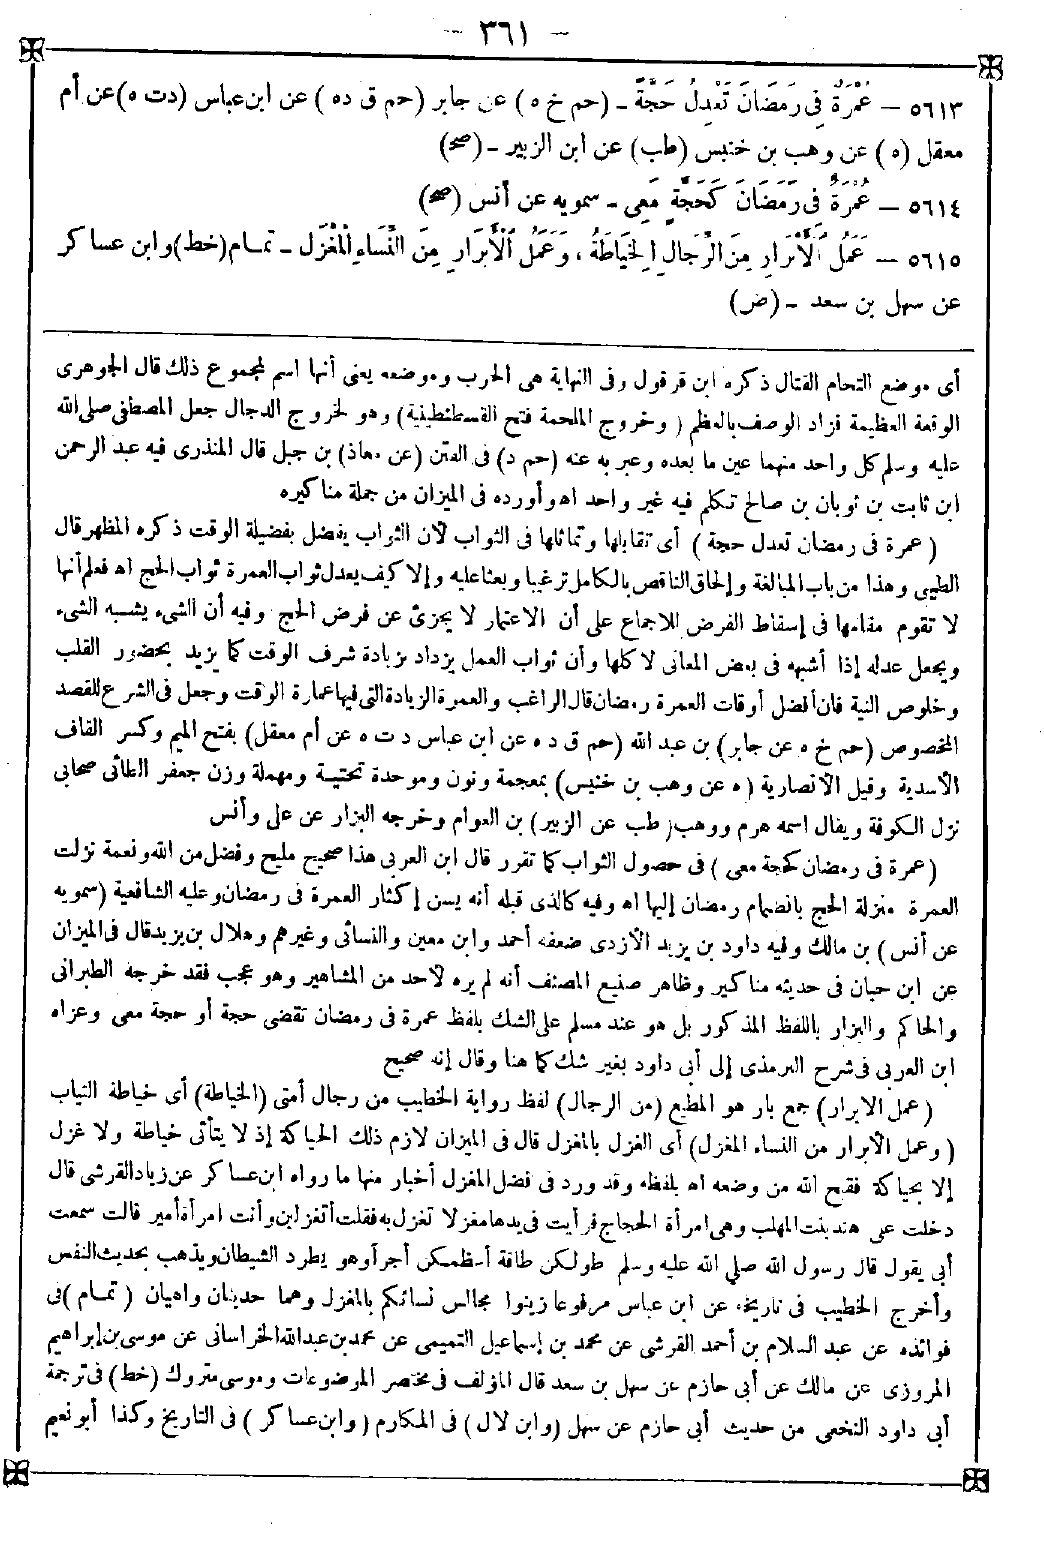 – ٣٦١ –
٥٦١٣ – عُمْرَةٌ فِي رَمَضَانَ تَعْدِلُ حَجَّةً - (حم خ ه) عن جابر (حم ق ده) عن ابن عباس (دت ه) عن أم
معقل (ه) عن وهب بن خنبس (طب) عن ابن الزبير - (صح)
٥٦١٤ – عُمْرَةٌ فِي رَمَضَانَ كَحَجَّةٍ مَعِي - سمويه عن أنس (صح)
٥٦١٥ – عَمَلُ الْأَبْرَارِ مِنَ الرِّجَالِ الْخِيَاطَةُ، وَعَمَلُ الْأَبْرَارِ مِنَ النِّسَاءِ الْمِغْزَلُ - تمام (خط) وابن عساكر
عن سهل بن سعد - (ض)
أى موضع التحام القتال ذكره ابن قرقول وفى النهاية هى الحرب وموضعه يعنى أنها اسم لمجموع ذلك قال الجوهرى
الوقعة العظيمة فزاد الوصف بالعظم (وخروج الملحمة فتح القسطنطينية) وهو لخروج الدجال جعل المصطفى صلى الله
عليه وسلم كل واحد منهما عين ما بعده وعبر به عنه (حم د) فى الفتن (عن معاذ) بن جبل قال المنذرى فيه عبد الرحمن
ابن ثابت بن ثوبان بن صالح تكلم فيه غير واحد اه وأورده فى الميزان من جملة مناكيره
(عمرة فى رمضان تعدل حجة) أى تقابلها وتماثلها فى الثواب لأن الثواب يفضل بفضيلة الوقت ذكره المظهر قال
الطيبى وهذا من باب المبالغة وإلحاق الناقص بالكامل ترغيبا وبعثا عليه وإلا كيف يعدل ثواب العمرة ثواب الحج اه فعلم أنها
لا تقوم مقامها فى إسقاط الفرض للاجماع على أن الاعتمار لا يجزئ عن فرض الحج وفيه أن الشىء يشبه الشىء
ويجعل عدله إذا أشبهه فى بعض المعانى لا كلها وأن ثواب العمل يزداد بزيادة شرف الوقت كما يزيد بحضور القلب
وخلوص النية فان أفضل أوقات العمرة رمضان قال الراغب والعمرة الزيادة التى فيها عمارة الوقت وجعل فى الشرع للقصد
المخصوص (حم خ ه عن جابر) بن عبد الله (حم ق د ه عن ابن عباس د ت ه عن أم معقل) بفتح الميم وكسر القاف
الأسدية وقيل الأنصارية (ه عن وهب بن خنبس) بمعجمة ونون وموحدة تحتية ومهملة وزن جعفر الطائى صحابى
نزل الكوفة ويقال اسمه هرم ووهب (طب عن الزبير) بن العوام وخرجه البزار عن على وأنس
(عمرة فى رمضان كحجة معى) فى حصول الثواب كما تقرر قال ابن العربى هذا صحيح مليح وفضل من الله ونعمة نزلت
العمرة منزلة الحج بانضمام رمضان إليها اه وفيه كالذى قبله أنه يسن إكثار العمرة فى رمضان وعليه الشافعية (سمويه
عن أنس) بن مالك وفيه داود بن يزيد الأزدى ضعفه أحمد وابن معين والنسائى وغيرهم وهلال بن يزيد قال فى الميزان
عن ابن حبان فى حديثه مناكير وظاهر صنيع المصنف أنه لم يره لأحد من المشاهير وهو عجب فقد خرجه الطبرانى
والحاكم والبزار باللفظ المذكور بل هو عند مسلم على الشك بلفظ عمرة فى رمضان تقضى حجة أو حجة معى وعزاه
ابن العربى فى شرح الترمذى إلى أبى داود بغير شك كما هنا وقال إنه صحيح
(عمل الابرار) جمع بار هو المطيع (من الرجال) لفظ رواية الخطيب من رجال أمتى (الخياطة) أى خياطة الثياب
(وعمل الأبرار من النساء المغزل) أى الغزل بالمغزل قال فى الميزان لازم ذلك الحياكة إذ لا يتأتى خياطة ولا غزل
إلا بحياكة فقبح الله من وضعه اه بلفظه وقد ورد فى فضل المغزل أخبار منها ما رواه ابن عساكر عن زياد القرشى قال
دخلت على هند بنت المهلب وهى امرأة الحجاج فرأيت فى يدها مغزلا تغزل به فقلت أتغزلين وأنت امرأة أمير قالت سمعت
أبى يقول قال رسول الله صلى الله عليه وسلم طولكن طاقة أعظمكن أجرا وهو يطرد الشيطان ويذهب بحديث النفس
وأخرج الخطيب فى تاريخه عن ابن عباس مرفوعا زينوا مجالس نسائكم بالمغزل وهما حديثان واهيان (تمام) فى
فوائده عن عبد السلام بن أحمد القرشى عن محمد بن إسماعيل التميمى عن محمد بن عبد الله الخراسانى عن موسى بن إبراهيم
المروزى عن مالك عن أبى حازم عن سهل بن سعد قال المؤلف فى مختصر الموضوعات وموسى متروك (خط) فى ترجمة
أبى داود النخعى من حديث أبى حازم عن سهل (وابن لال) فى المكارم (وابن عساكر) فى التاريخ وكذا أبو نعيم